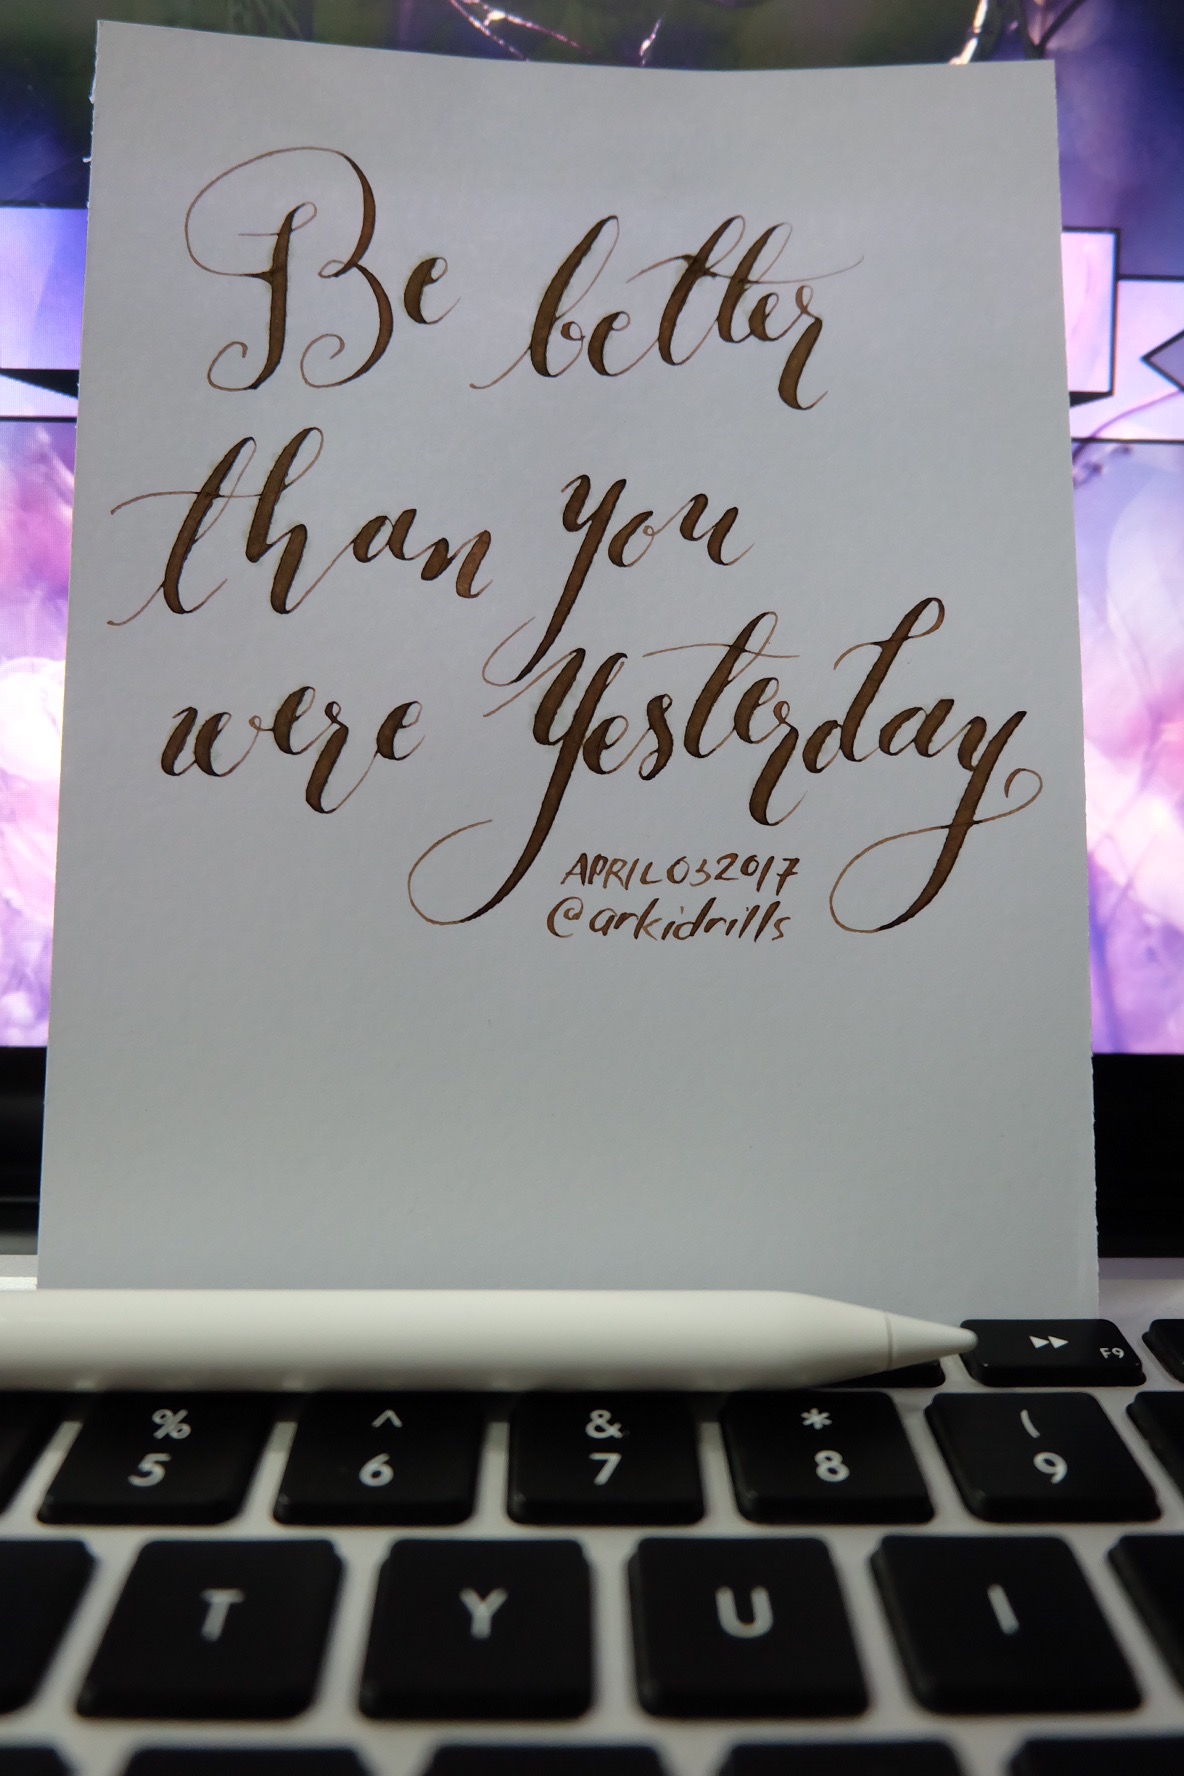 Be better
than you
were Yesterday
APRIL 03 2017
@arkidrills
F9
% ^ & * (
5 6 7 8 9
T Y U I